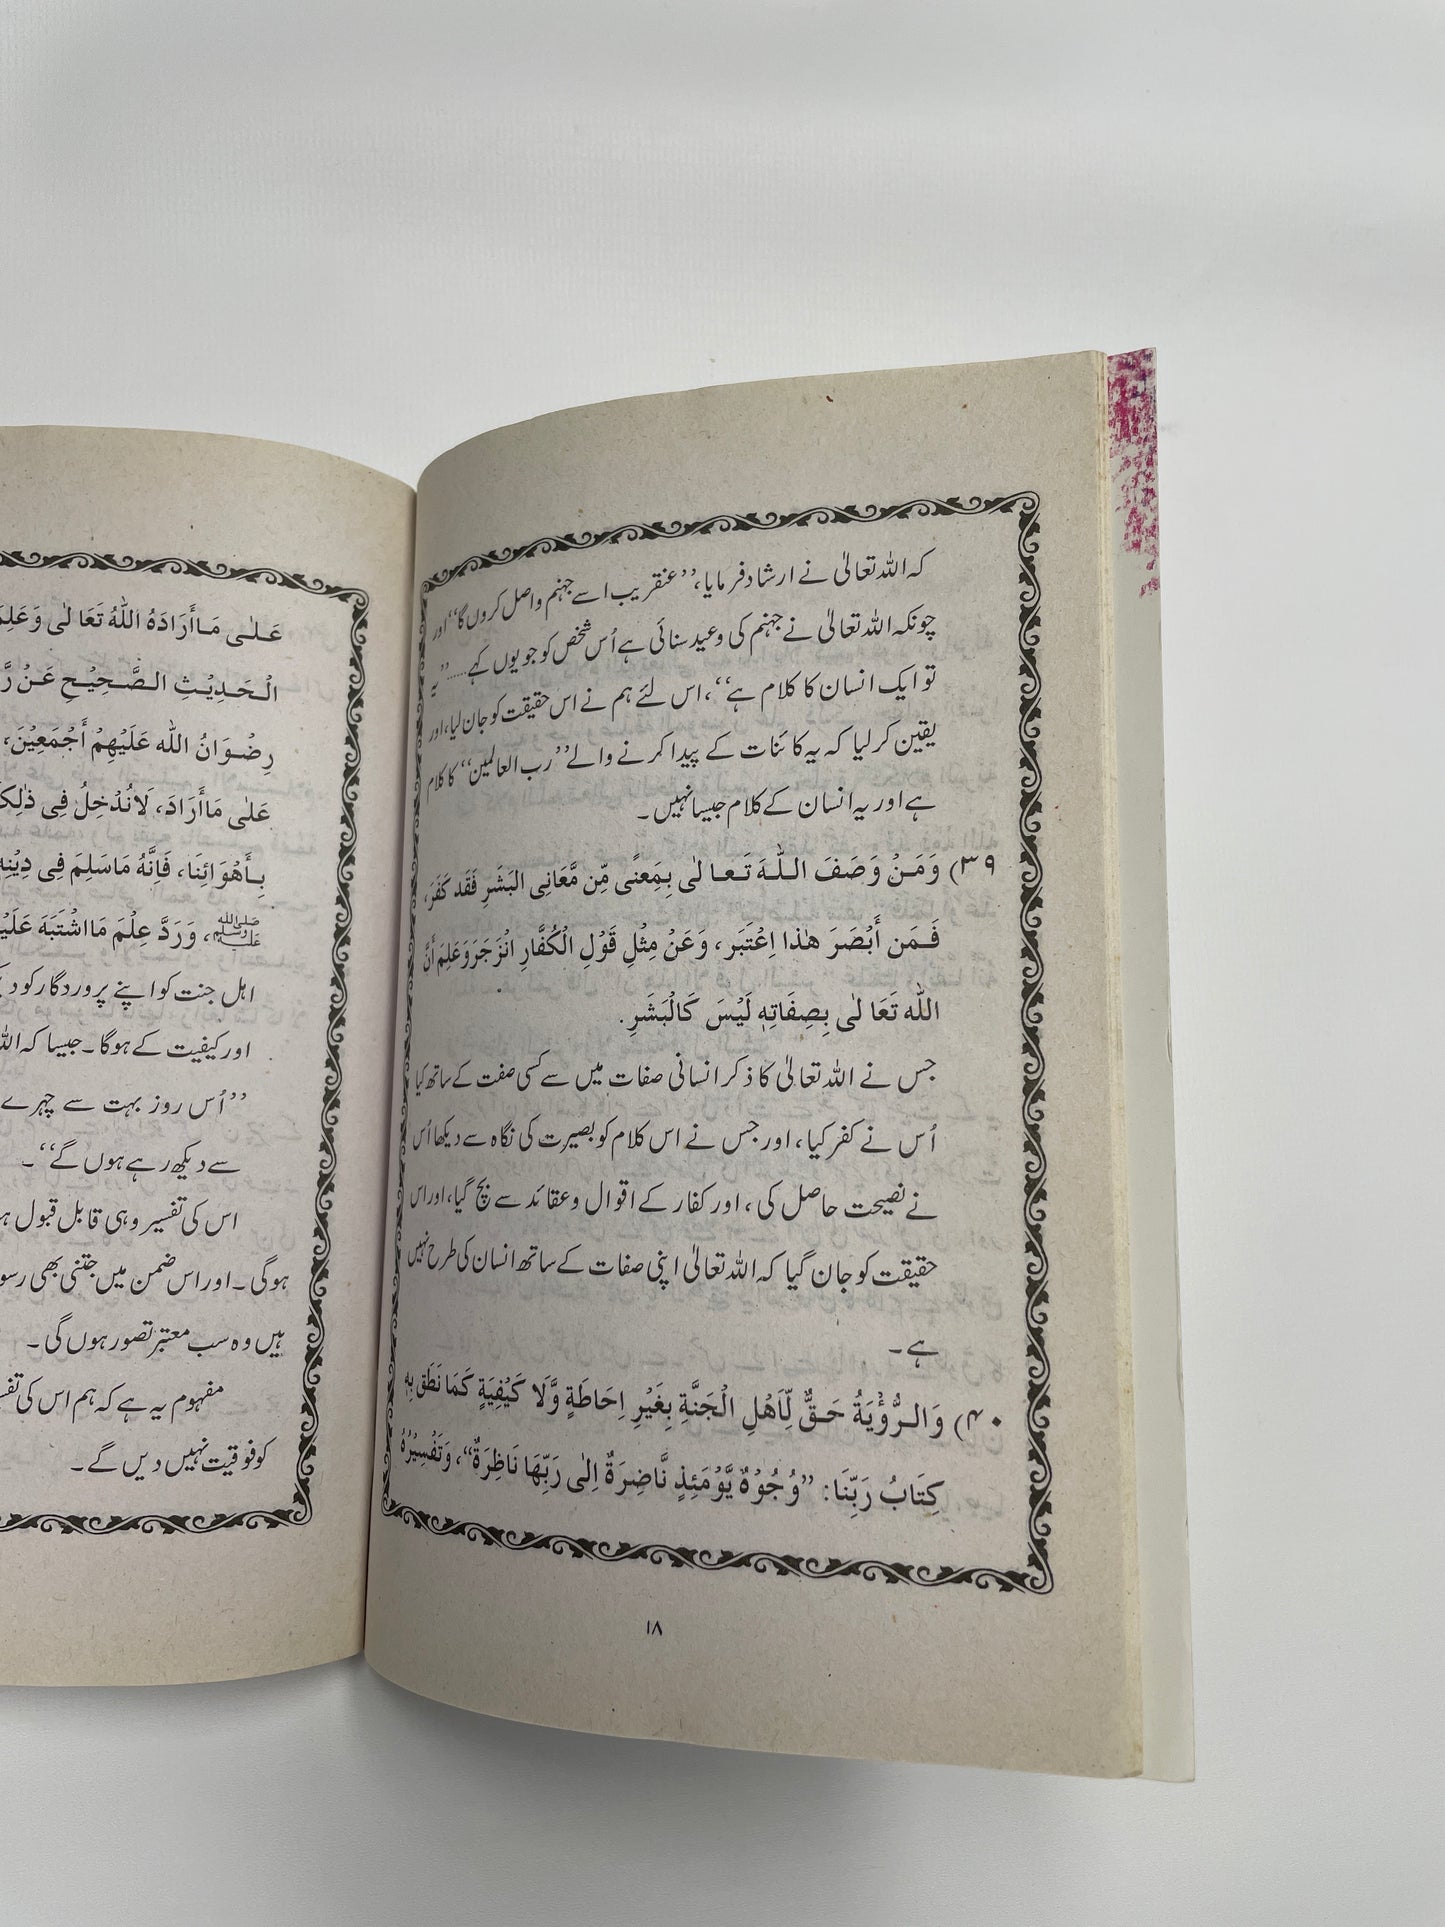 کہ اللہ تعالیٰ نے ارشاد فرمایا، ’’عنقریب اسے جہنم واصل کروں گا‘‘ اور
چونکہ اللہ تعالیٰ نے جہنم کی وعید سنائی ہے اُس شخص کو جو یوں کہے ..... ’’یہ
تو ایک انسان کا کلام ہے‘‘، اس لئے ہم نے اس حقیقت کو جان لیا، اور
یقین کر لیا کہ یہ کائنات کے پیدا کرنے والے ’’رب العالمین‘‘ کا کلام
ہے اور یہ انسان کے کلام جیسا نہیں۔
۳۹) وَمَنْ وَصَفَ اللّٰهَ تَعَالٰى بِمَعنًى مِّن مَّعَانِى البَشَرِ فَقَد كَفَرَ،
فَمَن أَبْصَرَ هٰذا اِعْتَبَر، وَعَنْ مِثْلِ قَوْلِ الْكُفَّارِ انْزَجَرَ وَعَلِمَ أَنَّ
اللّٰه تَعَالٰى بِصِفَاتِهٖ لَيْسَ كَالْبَشَرِ.
جس نے اللہ تعالیٰ کا ذکر انسانی صفات میں سے کسی صفت کے ساتھ کیا
اُس نے کفر کیا، اور جس نے اس کلام کو بصیرت کی نگاہ سے دیکھا اُس
نے نصیحت حاصل کی، اور کفار کے اقوال و عقائد سے بچ گیا، اور اس
حقیقت کو جان گیا کہ اللہ تعالیٰ اپنی صفات کے ساتھ انسان کی طرح نہیں
ہے۔
۴۰) وَالرُّؤْيَةُ حَقٌّ لِّاَهْلِ الْجَنَّةِ بِغَيْرِ اِحَاطَةٍ وَّلَا كَيْفِيَةٍ كَمَا نَطَقَ بِهٖ
كِتَابُ رَبِّنَا: ”وُجُوْهٌ يَّوْمَئِذٍ نَّاضِرَةٌ اِلٰى رَبِّهَا نَاظِرَةٌ“، وَتَفْسِيْرُهُ
۱۸
عَلٰى مَا أَرَادَهُ اللّٰهُ تَعَالٰى وَعَلِمَ
الْحَدِيْثِ الصَّحِيْحِ عَنْ
رِضْوَانُ اللّٰه عَلَيْهِمْ أَجْمَعِيْنَ،
عَلٰى مَا أَرَادَ، لَا نُدْخِلُ فِى ذٰلِكَ
بِأَهْوَائِنَا، فَاِنَّهُ مَا سَلِمَ فِى دِيْنِهٖ
ﷺ، وَرَدَّ عِلْمَ مَا اشْتَبَهَ
اہل جنت کو اپنے پروردگار کو
اور کیفیت کے ہوگا۔ جیسا کہ
’’اُس روز بہت سے چہرے
سے دیکھ رہے ہوں گے‘‘۔
اس کی تفسیر وہی قابل قبول
ہوگی۔ اور اس ضمن میں جتنی بھی
ہیں وہ سب معتبر تصور ہوں گی۔
مفہوم یہ ہے کہ ہم اس کی
کو فوقیت نہیں دیں گے۔